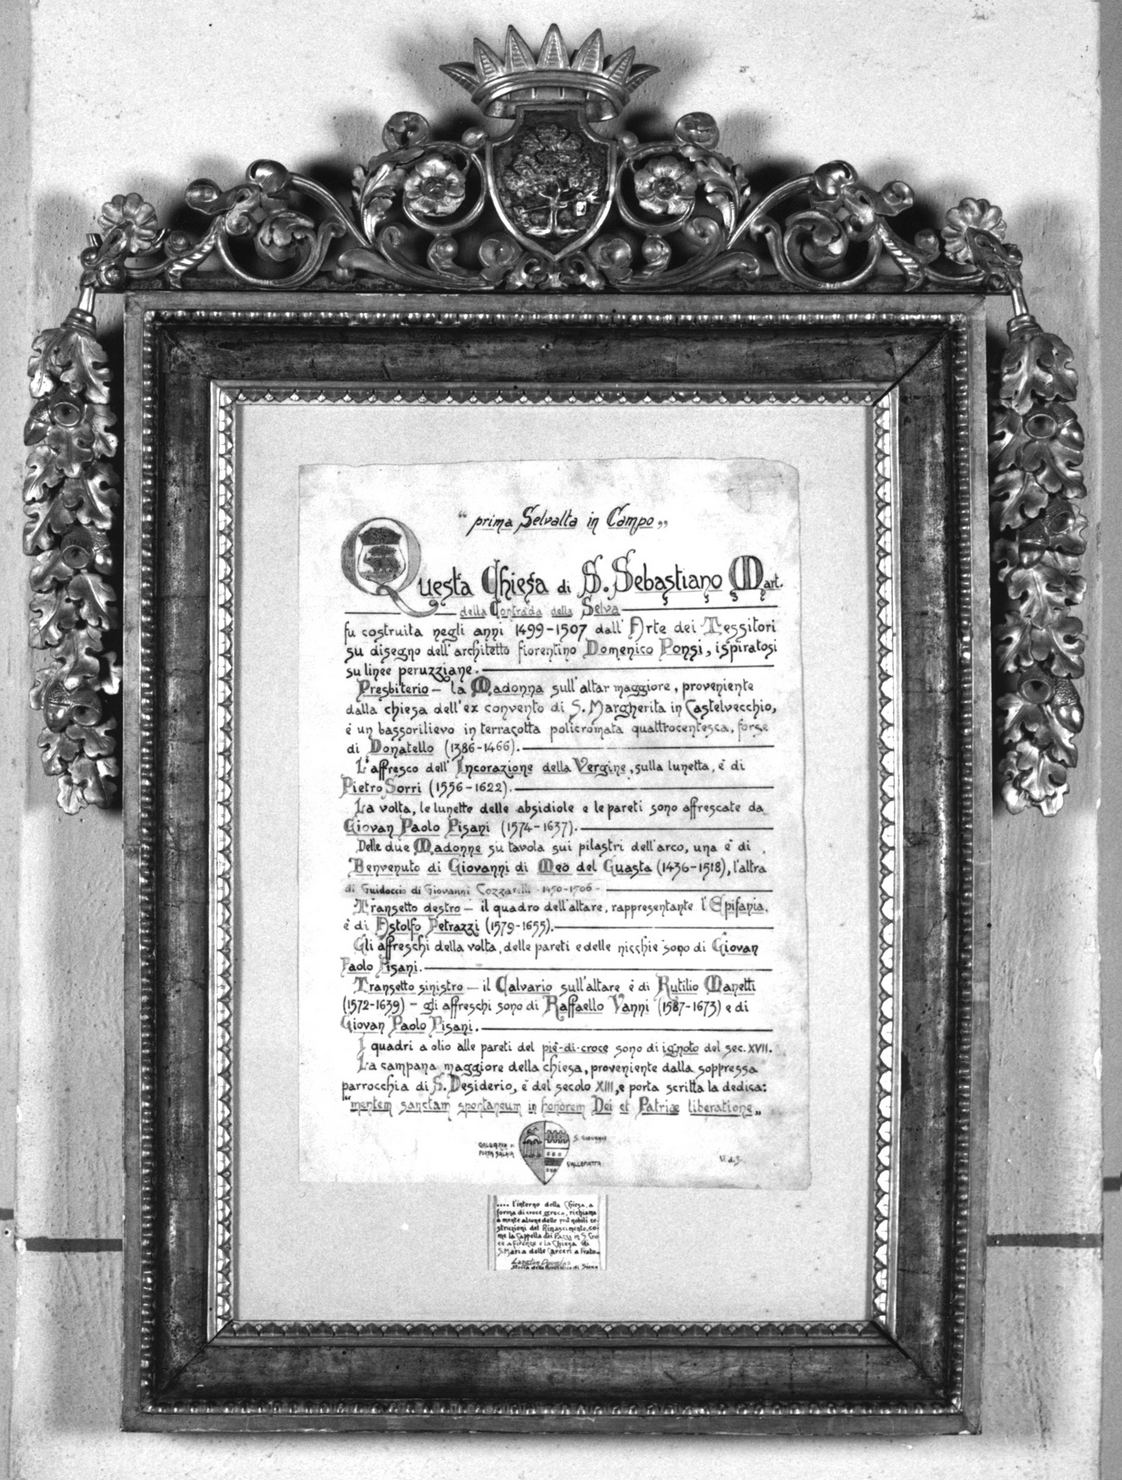 “prima Selvalta in Campo„
Questa Chiesa di S. Sebastiano Mart.
della Contrada della Selva
fu costruita negli anni 1499-1507 dall'Arte dei Tessitori
su disegno dell'architetto fiorentino Domenico Ponsi, ispiratosi
su linee peruzziane.
Presbiterio - la Madonna sull'altar maggiore, proveniente
dalla chiesa dell'ex convento di S. Margherita in Castelvecchio,
è un bassorilievo in terracotta policromata quattrocentesca, forse
di Donatello (1386-1466).
L'affresco dell'Incorazione della Vergine, sulla lunetta, è di
Pietro Sorri (1556-1622).
La volta, le lunette delle absidiole e le pareti sono affrescate da
Giovan Paolo Pisani (1574-1637).
Delle due Madonne su tavola sui pilastri dell'arco, una è di
Benvenuto di Giovanni di Meo del Guasta (1436-1518), l'altra
di Guidoccio di Giovanni Cozzarelli - 1450-1506 -
Transetto destro - il quadro dell'altare, rappresentante l'Epifania,
è di Astolfo Petrazzi (1579-1655).
Gli affreschi della volta, delle pareti e delle nicchie sono di Giovan
Paolo Pisani.
Transetto sinistro - il Calvario sull'altare è di Rutilio Manetti
(1572-1639) - gli affreschi sono di Raffaello Vanni (1587-1673) e di
Giovan Paolo Pisani.
I quadri a olio alle pareti del piè-di-croce sono di ignoto del sec. XVII.
La campana maggiore della chiesa, proveniente dalla soppressa
parrocchia di S. Desiderio, è del secolo XIII, e porta scritta la dedica:
“mentem sanctam spontaneum in honorem Dei et Patriæ liberatione„
S. GIOVANNI
VALLEPIATTA
PORTA SALAIA
V. d. S.
.... l'interno della Chiesa, a
forma di croce greca, richiama
a mente alcune delle più nobili co-
struzioni del Rinascimento, co-
me la Cappella dei Pazzi in S. Cro-
ce a Firenze e la Chiesa di
S. Maria delle Carceri a Prato.
Langton Douglas
Storia della Repubblica di Siena